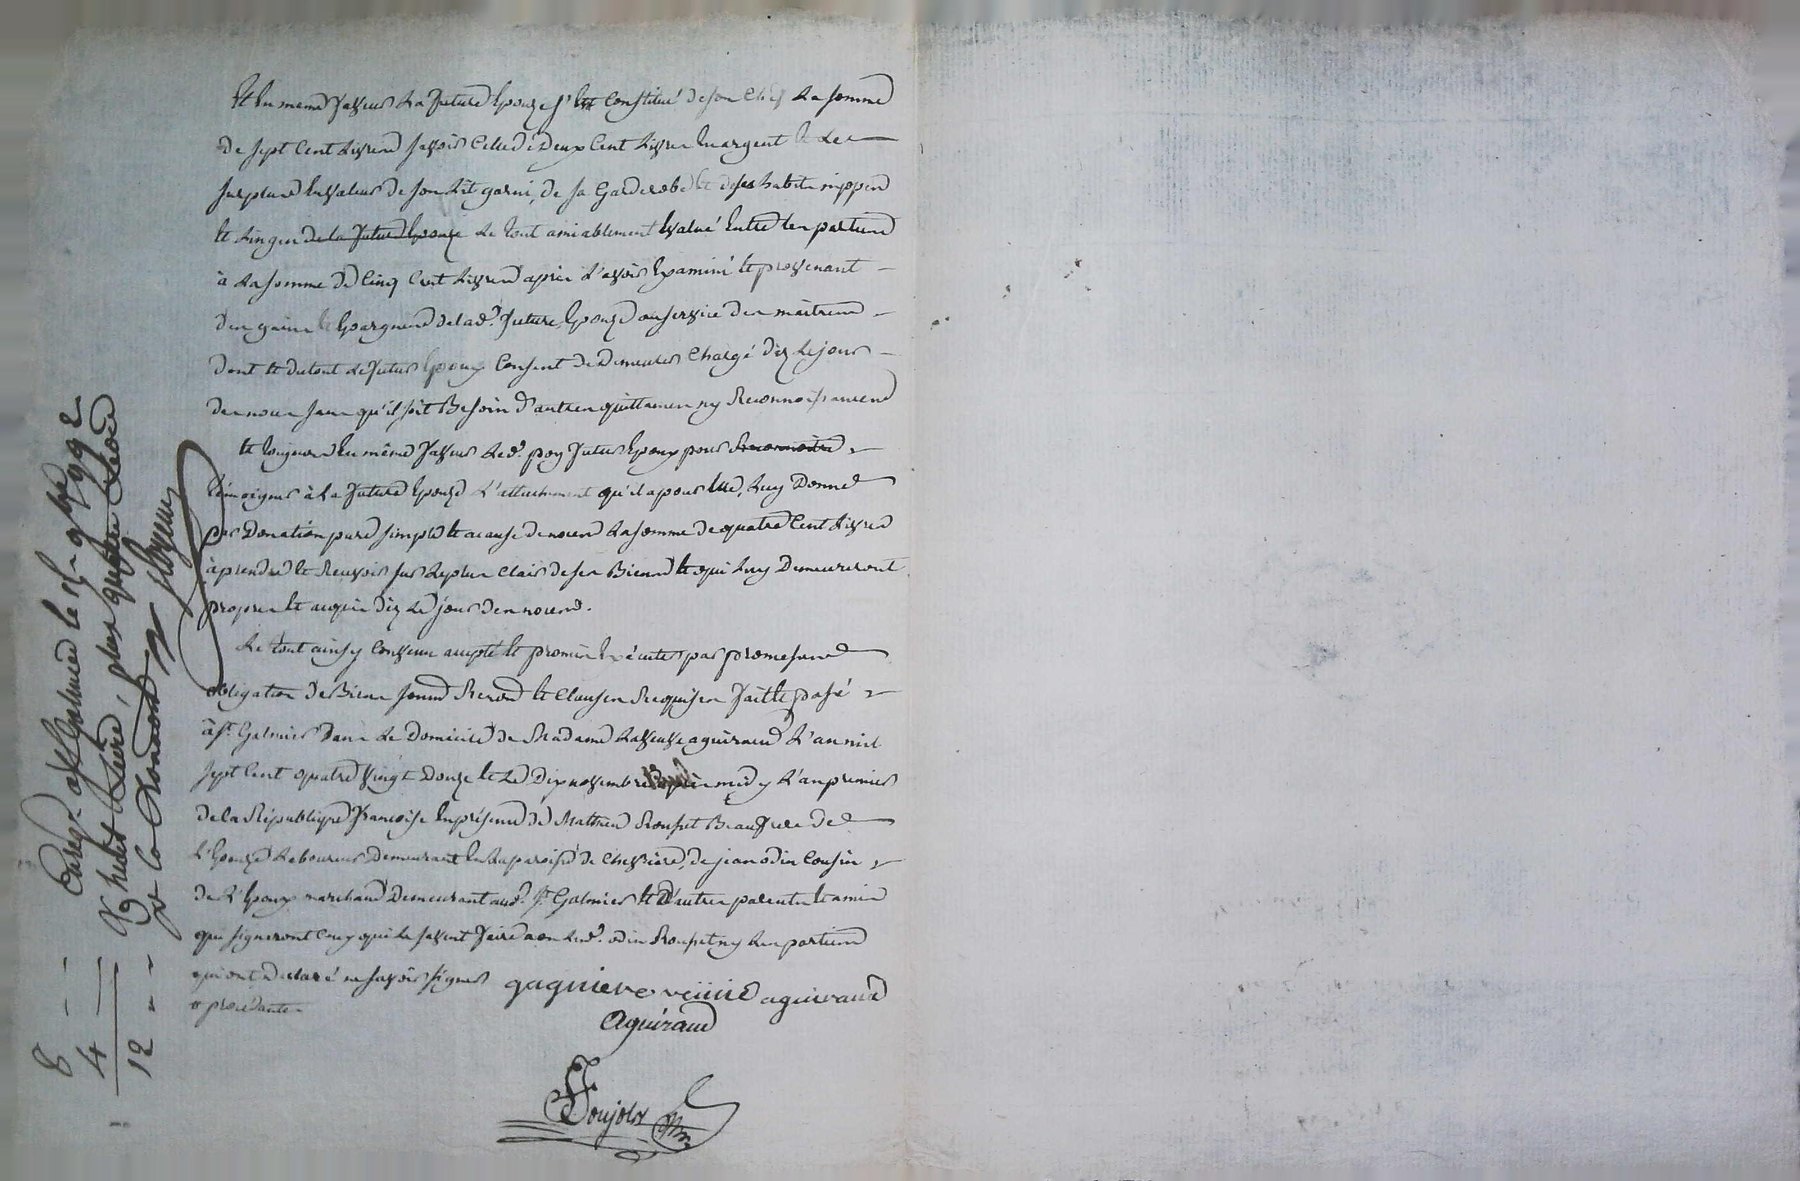 Et En meme faveur La future Epouze s'Est Constitué de son Chef La somme
de sept Cent Livres savoir Celle de Deux Cent Livres En argent Et Le
surplus En valeur de son Lit garni, de sa Garderobe Et de ses habits nippes
Et Linges de la future Epouze Le tout amiablement Evalué Entre les parties
à La somme de Cinq Cent Livres après L'avoir Examiné Et provenant
des gains Et Epargnes de lad.e future Epouze au service des maitres
dont Et du tout Le futur Epoux Consent de Demeurer Chargé dez Le jour
des noces sans qu'il soit Besoin d'autres quittances ny Reconnoissances
Et En même faveur Led. futur Epoux pour Reconnoitre
témoigner à La future Epouze L'attachement qu'il a pour Elle, Luy Donne
par Donation pure simple Et a cause de noces La somme de quatre Cent Livres
à prendre Et Recevoir sur Le plus Clair de ses Biens Et qui Luy Demeureront
propres Et acquis dez Le jour des noces.
Le tout ainsy Convenu accepté Et promis Exécuter par promesses
obligation de Biens soumis Renon Et Clauses Requises fait Et passé
à St. Galmier Dans Le Domicile de Madame La veuve aguiraud L'an mil
sept Cent quatre vingt Douze Et Le Dix novembre après midy L'an premier
de la République françoise En présence de Mathieu Rousset Beaufrere de
L'Epouze Laboureur demeurant En La paroisse de Chevrière, de jean odin Cousin
de L'Epoux marchand Demeurant aud. St. Galmier Et d'autres parents Et amis
qui signeront Ceux qui Le savent faire non Led. odin Rousset ny Les parties
qui ont déclaré ne savoir signer
gagniere veuve aguiraud
Aguiraud
Enreg.
huit Livres, plus quatre Livres
8
4
12